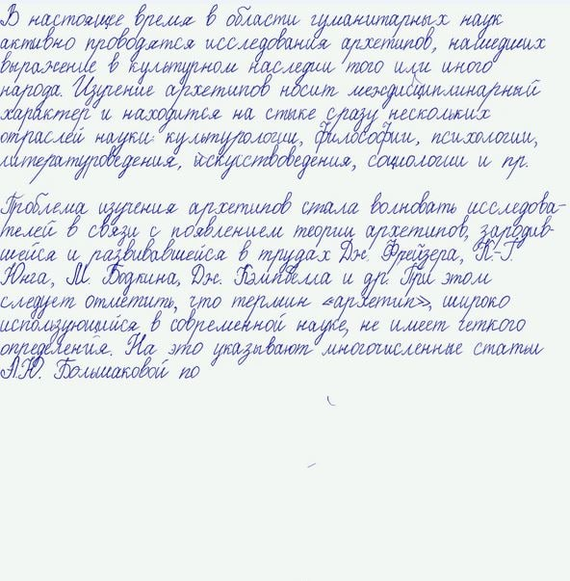 В настоящее время в области гуманитарных наук
активно проводятся исследования архетипов, нашедших
выражение в культурном наследии того или иного
народа. Изучение архетипов носит междисциплинарный
характер и находится на стыке сразу нескольких
отраслей науки: культурологии, философии, психологии,
литературоведения, искусствоведения, социологии и пр.
Проблема изучения архетипов стала волновать исследова-
телей в связи с появлением теории архетипов, зародив-
шейся и развивавшейся в трудах Дж. Фрейзера, К.-Г.
Юнга, М. Бодкина, Дж. Кэмпбелла и др. При этом
следует отметить, что термин «архетип», широко
использующийся в современной науке, не имеет четкого
определения. На это указывают многочисленные статьи
А.Ю. Большаковой по